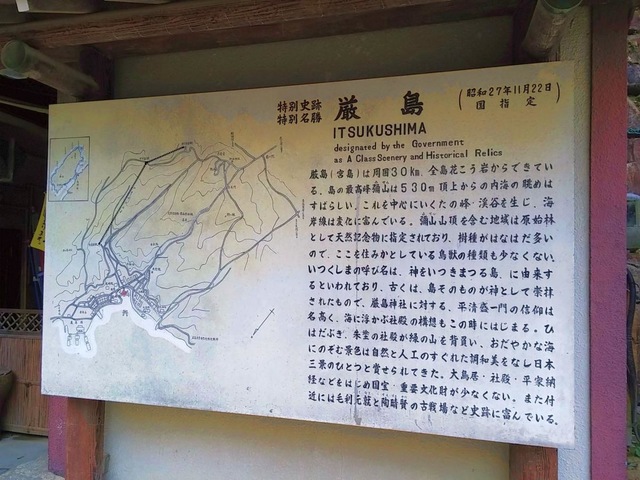 特別史跡
特別名勝
厳島
(昭和27年11月22日
国指定)
ITSUKUSHIMA
designated by the Government
as A Class Scenery and Historical Relics
厳島(宮島)は周囲30km、全島花こう岩からできてい
る。島の最高峰彌山は530m頂上からの内海の眺めは
すばらしい。これを中心にいくたの峰・渓谷を生じ、海
岸線は変化に富んでいる。彌山山頂を含む地域は原始林
として天然記念物に指定されており、樹種がはなはだ多い
ので、ここを住みかとしている鳥獣の種類も少なくない。
いつくしまの呼び名は、神をいつきまつる島、に由来す
るといわれており、古くは、島そのものが神として崇拝
されたもので、厳島神社に対する、平清盛一門の信仰は
名高く、海に浮かぶ社殿の構想もこの時にはじまる。ひ
はだぶき、朱塗の社殿が緑の山を背負い、おだやかな海
にのぞむ景色は自然と人工のすぐれた調和美をなし日本
三景のひとつと賞せられてきた。大鳥居・社殿・平家納
経などをはじめ国宝・重要文化財が少なくない。また付
近には毛利元就と陶晴賢の古戦場など史跡に富んでいる。